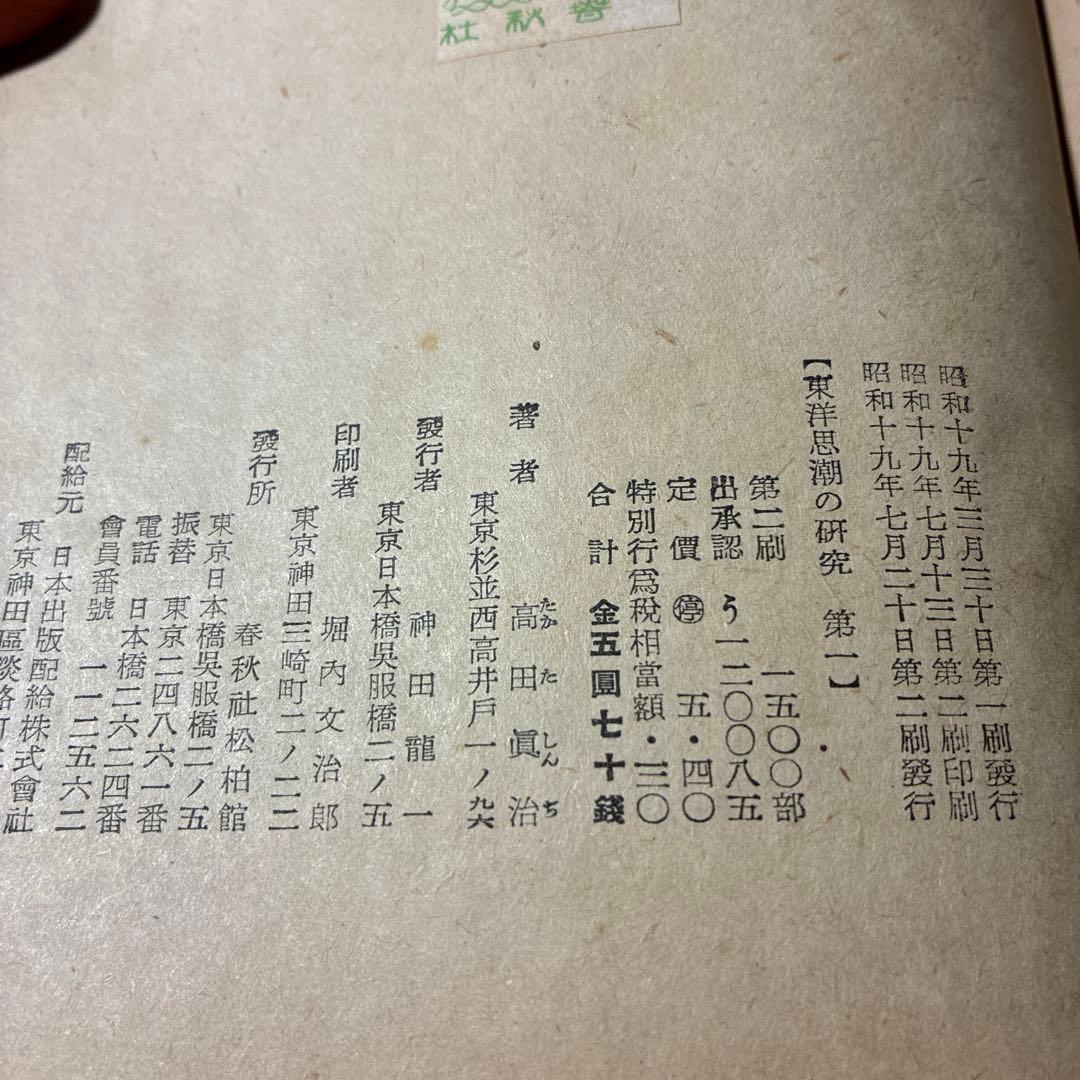 春秋社
昭和十九年三月三十日第一刷發行
昭和十九年七月十三日第二刷印刷
昭和十九年七月二十日第二刷發行
【東洋思潮の研究 第一】
第二刷 一五〇〇部
出承認 う一二〇〇八五
定價 ㊡ 五・四〇
特別行爲稅相當額・三〇
合計 金五圓七十錢
著者 高田眞治
たか た しん ぢ
東京杉並西高井戶一ノ九六
發行者 神田龍一
東京日本橋吳服橋二ノ五
印刷者 堀內文治郎
東京神田三崎町二ノ二二
發行所 春秋社松柏館
東京日本橋吳服橋二ノ五
振替 東京二四八六一番
電話 日本橋二六二四番
會員番號 一一二五六二
配給元 日本出版配給株式會社
東京神田區淡路町二